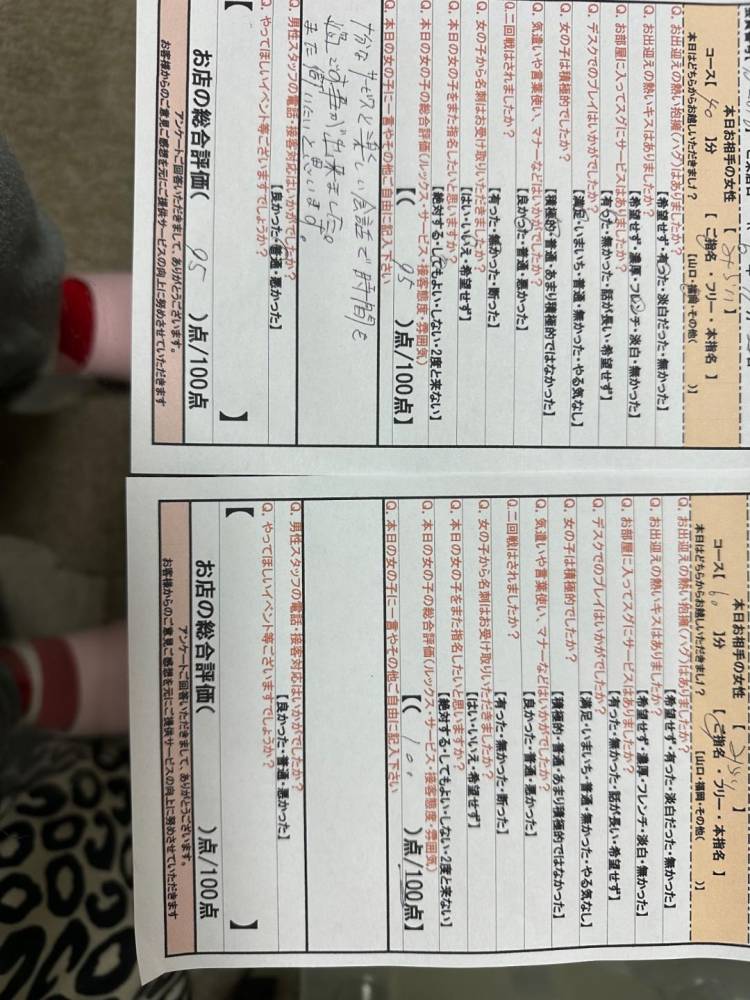 本日お相手の女性
コース【 40 】分 【 ご指名 ・ フリー ・ 本指名 】
本日はどちらからお越しいただきまし? 【山口・福岡・その他( )】
Q. お出迎えの熱い抱擁(ハグ)はありましたか?
【希望せず・有った・淡白だった・無かった】
Q. お出迎えの熱いキスはありましたか?
【希望せず・濃厚・フレンチ・淡白・無かった】
Q. お部屋に入ってスグにサービスはありましたか?
【有った・無かった・話が長い・希望せず】
Q. デスクでのプレイはいかがでしたか?
【満足・いまいち・普通・無かった・やる気なし】
Q. 女の子は積極的でしたか?
【積極的・普通・あまり積極的ではなかった】
Q. 気遣いや言葉使い、マナーなどはいかがでしたか?
【良かった・普通・悪かった】
Q. 二回戦はされましたか?
【有った・無かった・断った】
Q. 女の子から名刺はお受け取りいただきましたか?
【はい・いいえ・希望せず】
Q. 本日の女の子をまた指名したいと思いますか?
【絶対する・してもよい・しない・2度と来ない】
Q. 本日の女の子の総合評価(ルックス・サービス・接客態度・雰囲気)
【( 95 )点/100点】
Q. 本日の女の子に一言やその他ご自由に記入下さい
十分なサービスと楽しい会話で時間を
過ごす事が出来ました。
また伺いたいと思います。
Q. 男性スタッフの電話・接客対応はいかがでしたか?
【良かった・普通・悪かった】
Q. やってほしいイベント等ございますでしょうか?
【 】
お店の総合評価( 95 )点/100点
アンケートに回答いただきまして、ありがとうございます。
お客様からのご意見ご感想を元にご提供サービスの向上に努めさせていただきます
本日お相手の女性
コース【 60 】分 【 ご指名 ・ フリー ・ 本指名 】
本日はどちらからお越しいただきまし? 【山口・福岡・その他( )】
Q. お出迎えの熱い抱擁(ハグ)はありましたか?
【希望せず・有った・淡白だった・無かった】
Q. お出迎えの熱いキスはありましたか?
【希望せず・濃厚・フレンチ・淡白・無かった】
Q. お部屋に入ってスグにサービスはありましたか?
【有った・無かった・話が長い・希望せず】
Q. デスクでのプレイはいかがでしたか?
【満足・いまいち・普通・無かった・やる気なし】
Q. 女の子は積極的でしたか?
【積極的・普通・あまり積極的ではなかった】
Q. 気遣いや言葉使い、マナーなどはいかがでしたか?
【良かった・普通・悪かった】
Q. 二回戦はされましたか?
【有った・無かった・断った】
Q. 女の子から名刺はお受け取りいただきましたか?
【はい・いいえ・希望せず】
Q. 本日の女の子をまた指名したいと思いますか?
【絶対する・してもよい・しない・2度と来ない】
Q. 本日の女の子の総合評価(ルックス・サービス・接客態度・雰囲気)
【( 100 )点/100点】
Q. 本日の女の子に一言やその他ご自由に記入下さい
Q. 男性スタッフの電話・接客対応はいかがでしたか?
【良かった・普通・悪かった】
Q. やってほしいイベント等ございますでしょうか?
【 】
お店の総合評価( )点/100点
アンケートに回答いただきまして、ありがとうございます。
お客様からのご意見ご感想を元にご提供サービスの向上に努めさせていただきます